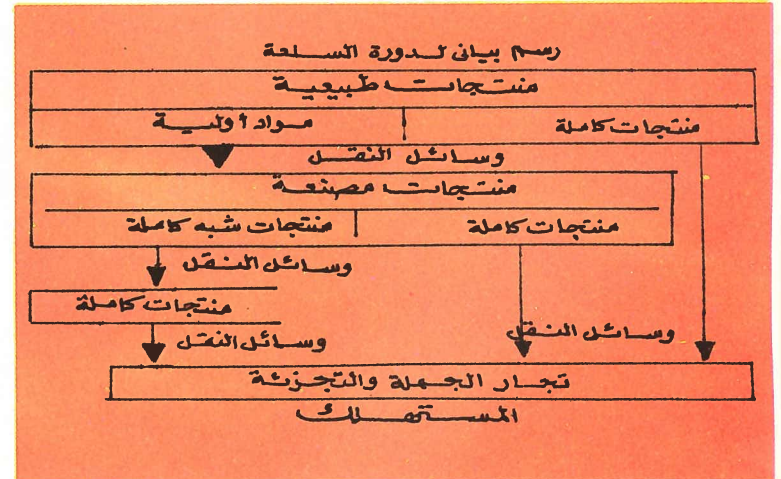 رسم بيانى لدورة السلعة
منتجات طبيعية
منتجات كاملة مواد أولية
وسائل النقل
منتجات مصنعة
منتجات كاملة منتجات شبه كاملة
وسائل النقل
منتجات كاملة
وسائل النقل وسائل النقل
تجار الجملة والتجزئة
المستهلك